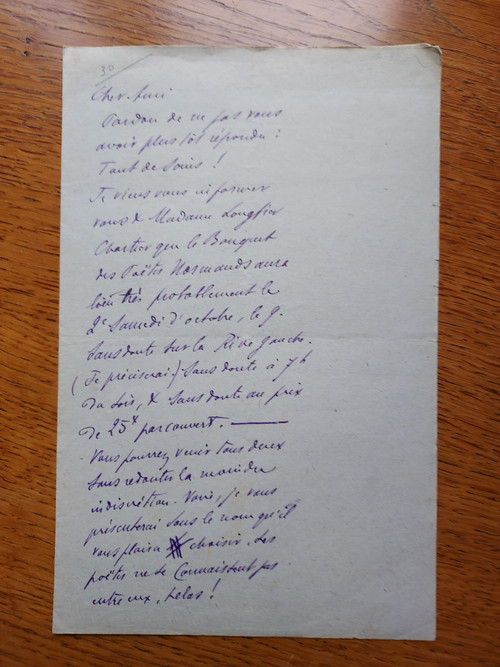 30
Cher Ami
Pardon de ne pas vous
avoir plus tôt répondu :
Tant de soins !
Je viens vous informer
vous & Madame Longfier
Chartier que le Banquet
des Poëtes Normands aura
lieu très probablement le
2e Samedi d'octobre, le 9.
Sans doute sur la Rive gauche.
(Je préciserai.) Sans doute à 7h
du soir, & sans doute au prix
de 25 par couvert. —
Vous pourrez venir tous deux
sans redouter la moindre
indiscrétion. Vous, je vous
présenterai sous le nom qu'il
vous plaira choisir. Les
poëtes ne se connaissent pas
entre eux, hélas !